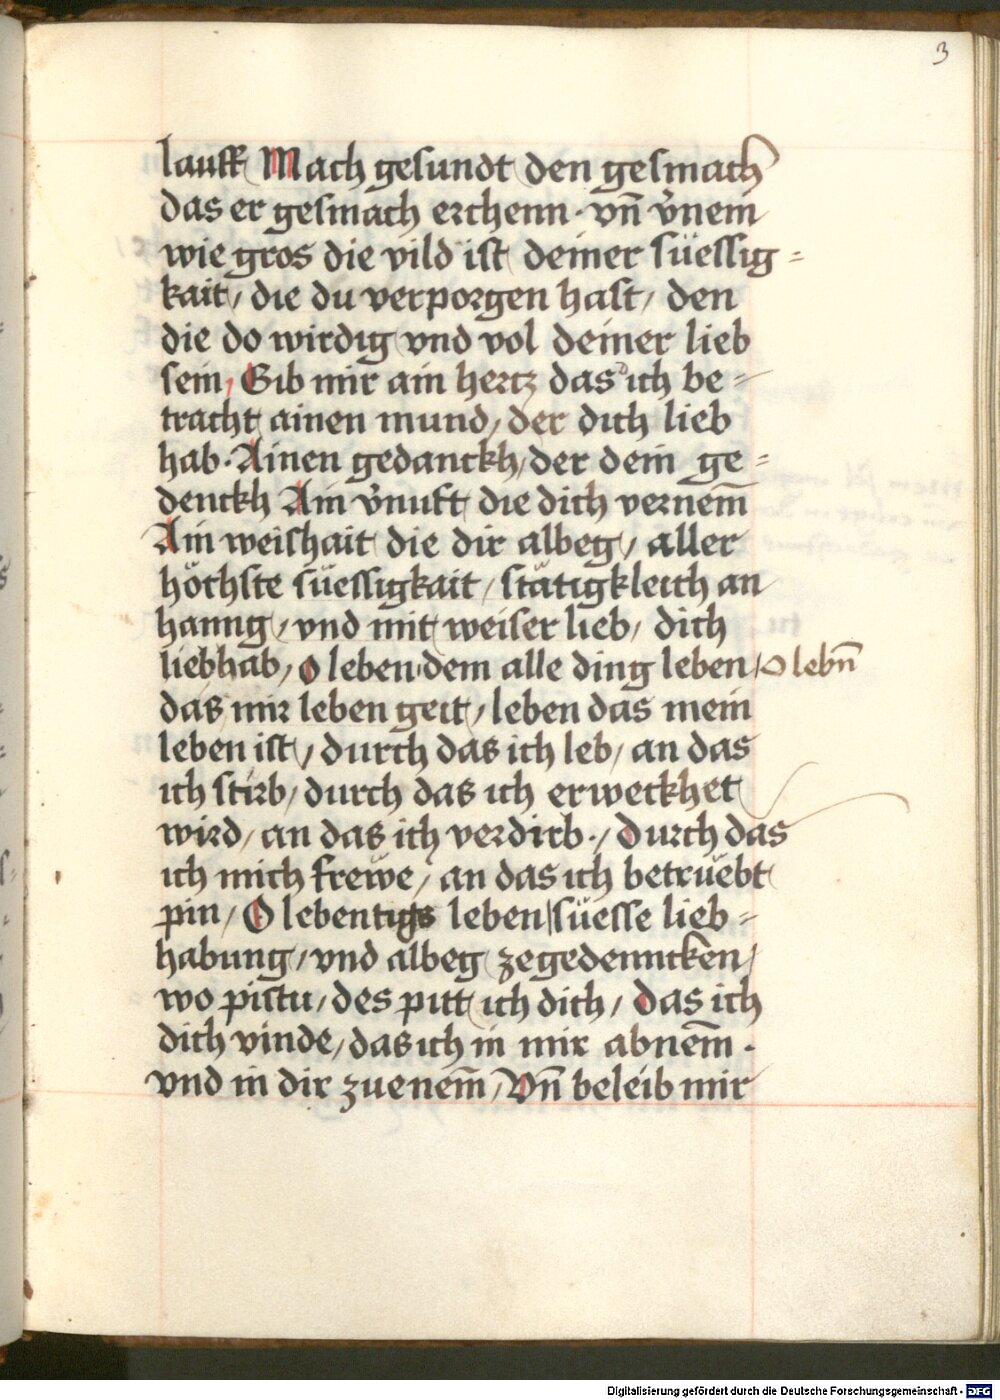 3
lauff Mach gesundt den gesmach
das er gesmach erchenn · vn̄ v̉nem
wie gros die vild ist deiner süessig=
kait / die du verporgen hast / den
die do wirdig vnd vol deiner lieb
sein, Gib mir ain hertz das ich be=
tracht ainen mund / der dich lieb
hab · Ainen gedanckh / der dein ge=
denckh Ain v̉nuft die dich vernem̄
Ain weishait die dir albeg / aller
höchste süessigkait / stätigkleich an
hanng / vnd mit weiser lieb / dich
liebhab / O leben dem alle ding leben / O lebn̄
das mir leben geit / leben das mein
leben ist / durch das ich leb / an das
ich stirb / durch das ich erweckhet
wird / an das ich verdirb · / Durch das
ich mich frewe / an das ich betrüebt
pin / O lebentigs leben / süesse lieb=
habung / vnd albeg zegedenncken /
wo pistu / des pitt ich dich / Das ich
dich vinde / das ich in mir abnem̄ ·
vnd in dir zuenem̄ / Vn̄ beleib mir
Digitalisierung gefördert durch die Deutsche Forschungsgemeinschaft - DFG